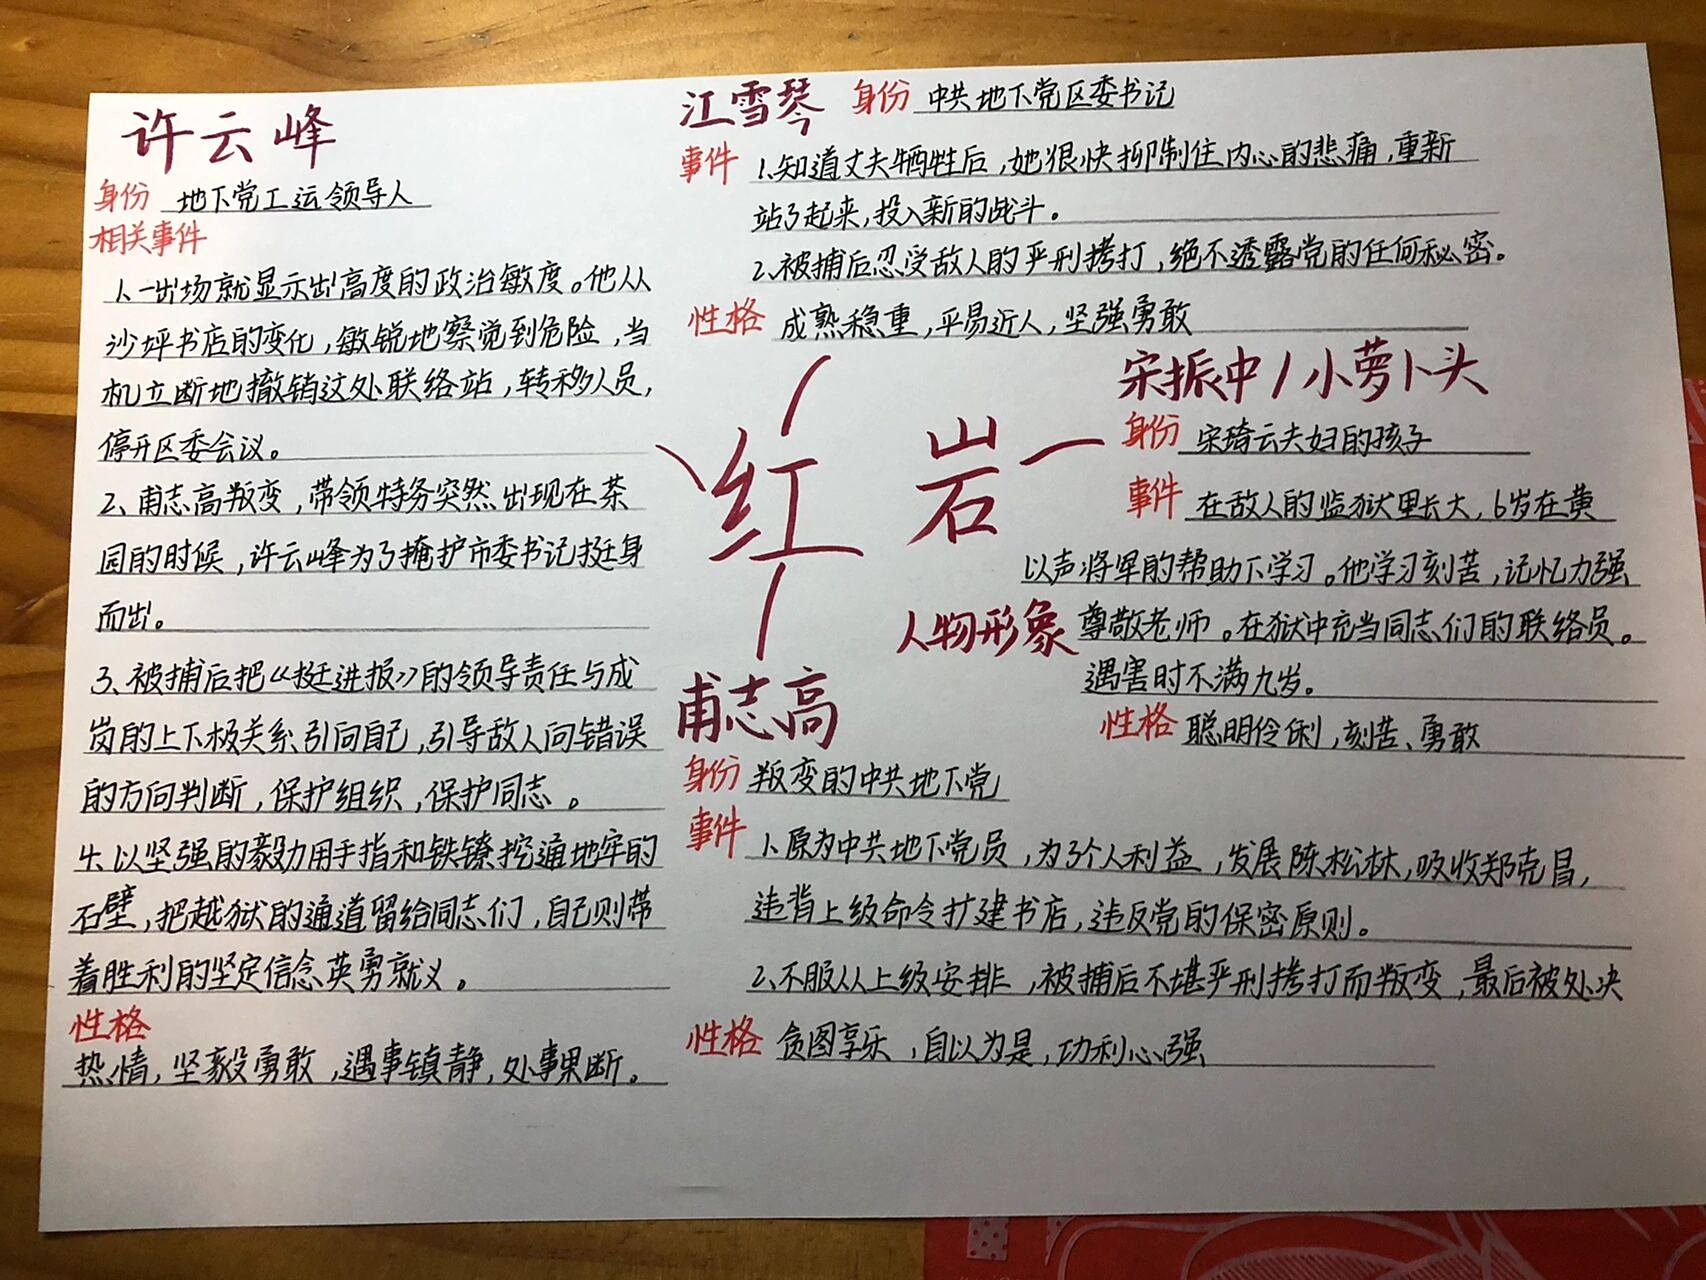 许云峰
身份 地下党工运领导人
相关事件
1、一出场就显示出高度的政治敏度。他从
沙坪书店的变化，敏锐地察觉到危险，当
机立断地撤销这处联络站，转移人员，
停开区委会议。
2、甫志高叛变，带领特务突然出现在茶
园的时候，许云峰为了掩护市委书记挺身
而出。
3、被捕后把《挺进报》的领导责任与成
岗的上下极关系引向自己，引导敌人向错误
的方向判断，保护组织，保护同志。
4、以坚强的毅力用手指和铁镣挖通地牢的
石壁，把越狱的通道留给同志们，自己则带
着胜利的坚定信念英勇就义。
性格
热情，坚毅勇敢，遇事镇静，处事果断。
江雪琴 身份 中共地下党区委书记
事件 1、知道丈夫牺牲后，她狠快抑制住内心的悲痛，重新
站了起来，投入新的战斗。
2、被捕后忍受敌人的严刑拷打，绝不透露党的任何秘密。
性格 成熟稳重，平易近人，坚强勇敢
红岩
人物形象
宋振中/小萝卜头
身份 宋琦云夫妇的孩子
事件 在敌人的监狱里长大，6岁在黄
以声将军的帮助下学习。他学习刻苦，记忆力强
尊敬老师。在狱中充当同志们的联络员。
遇害时不满九岁。
性格 聪明伶俐，刻苦、勇敢
甫志高
身份 叛变的中共地下党
事件 1、原为中共地下党员，为了个人利益，发展陈松林，吸收郑克昌，
违背上级命令扩建书店，违反党的保密原则。
2、不服从上级安排，被捕后不堪严刑拷打而叛变，最后被处决
性格 贪图享乐，自以为是，功利心强